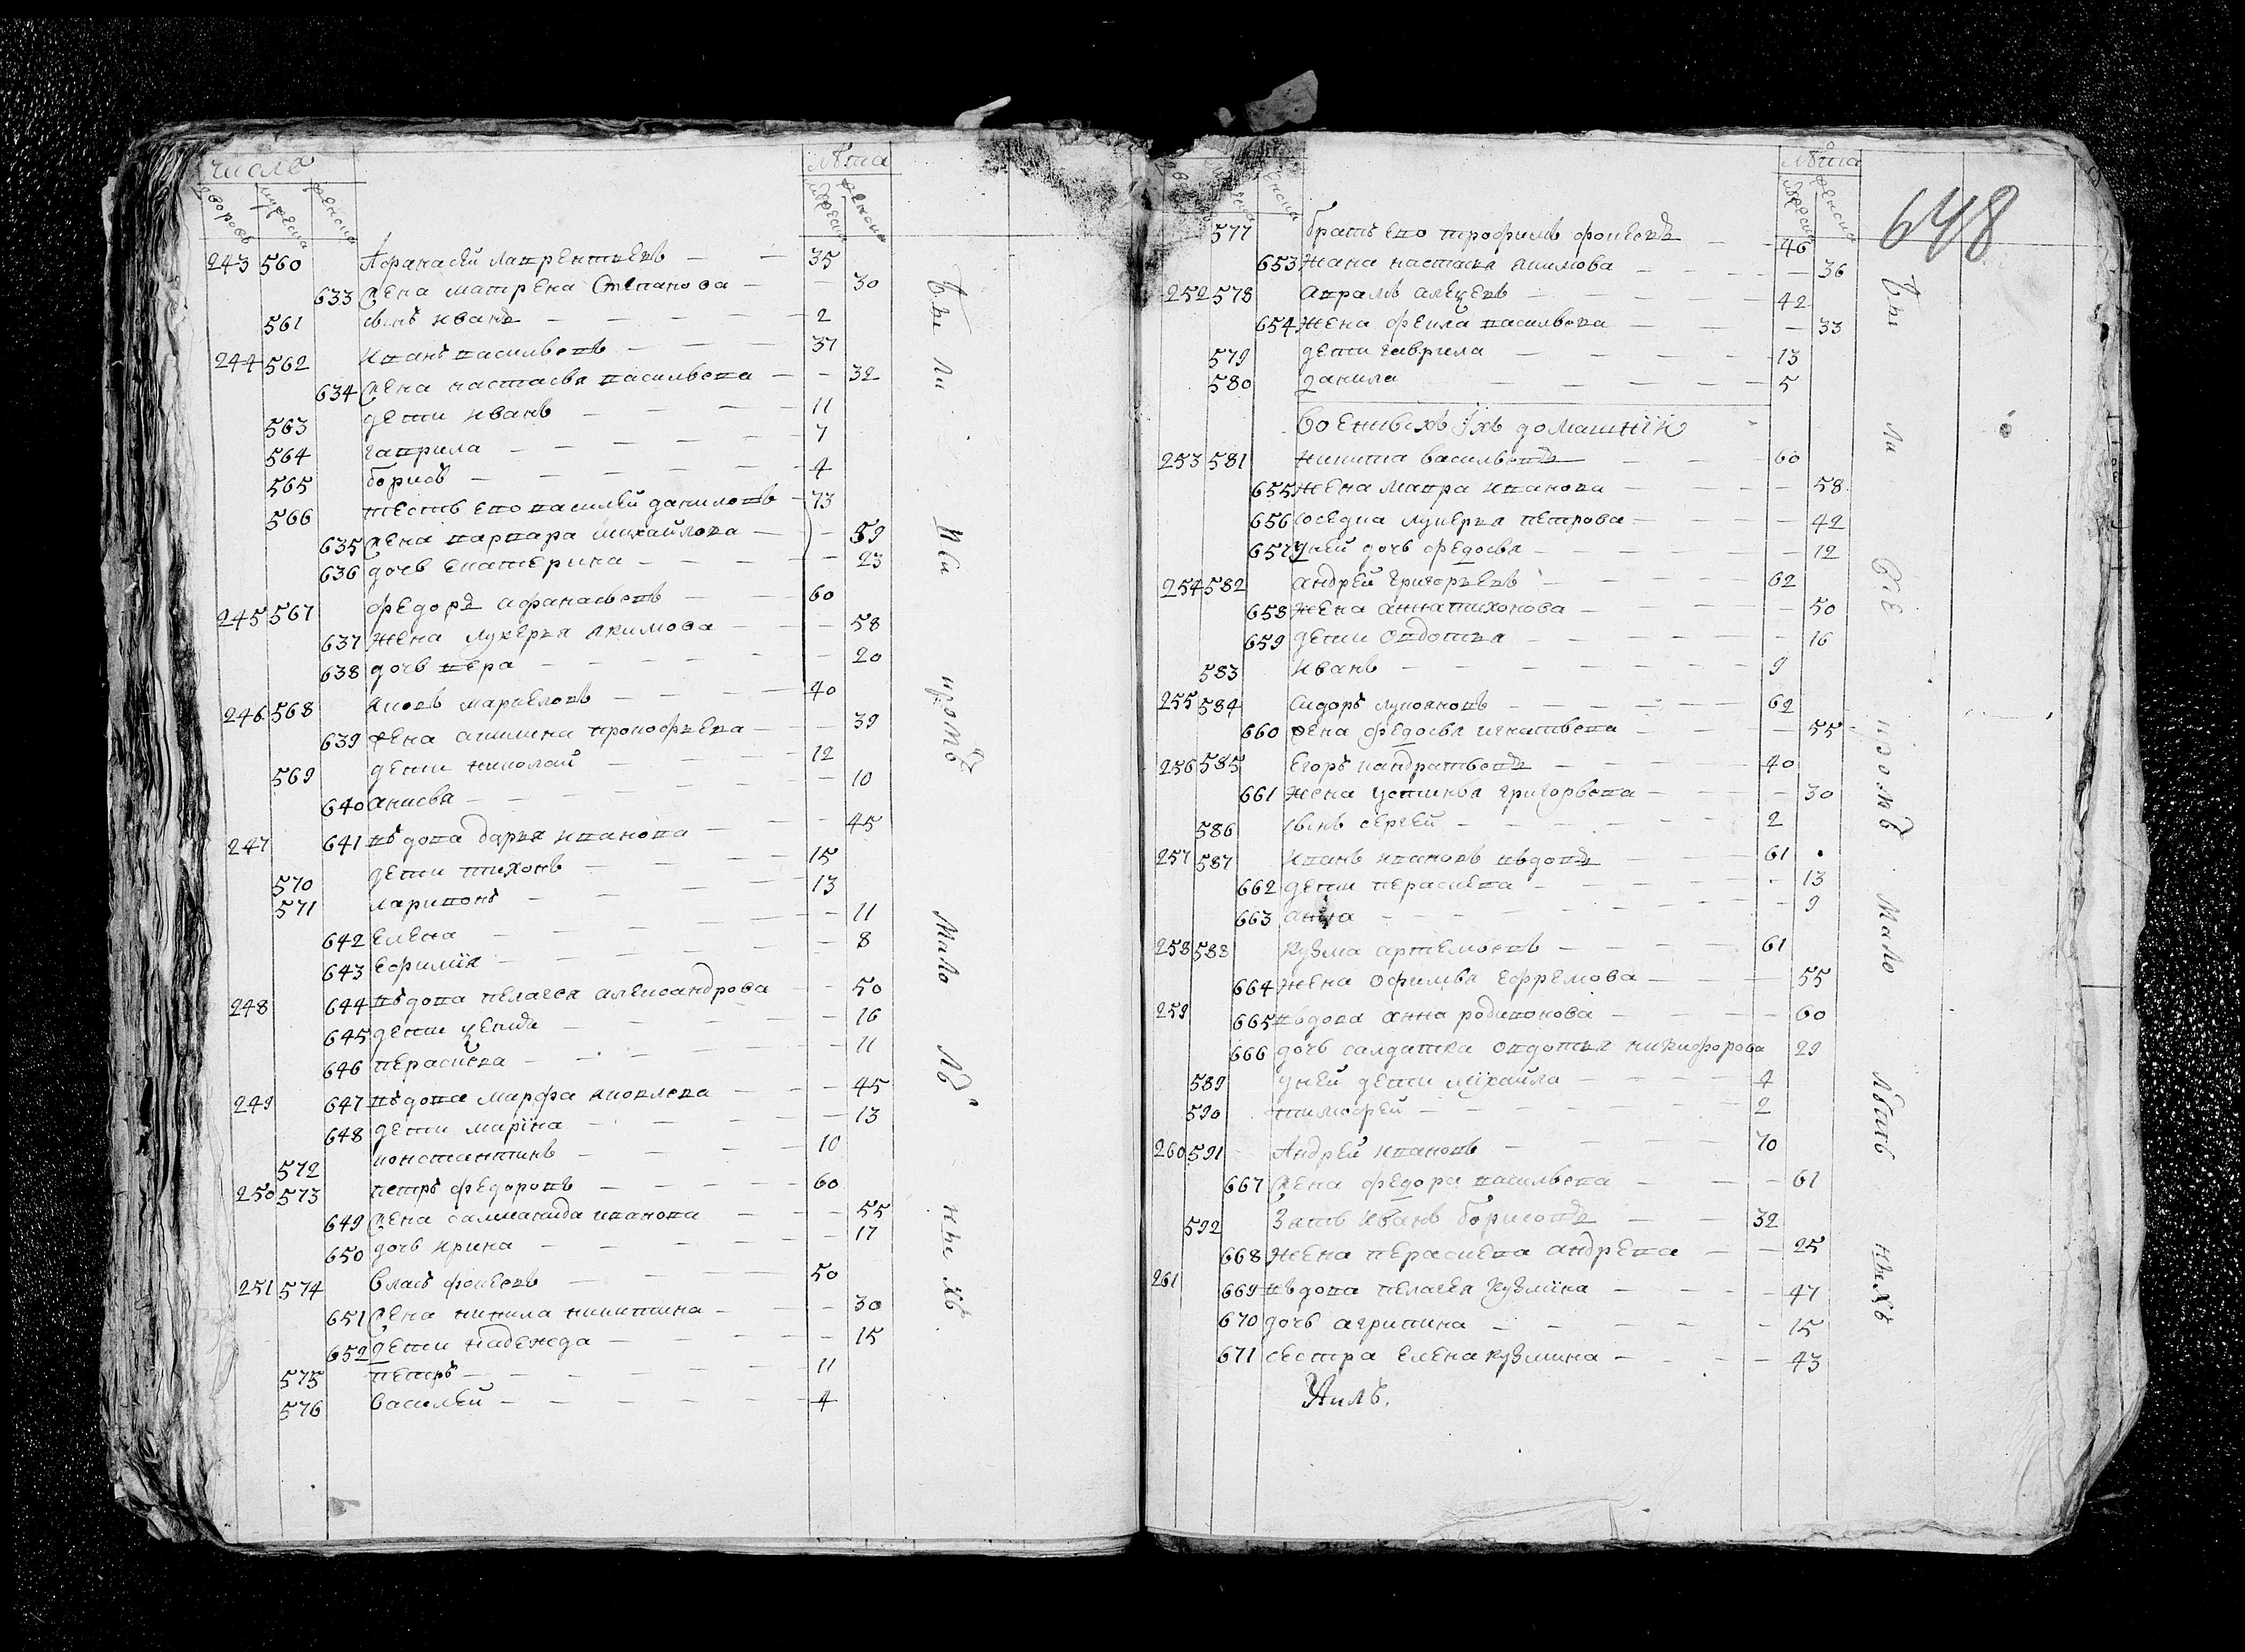 число
дворовъ мужеска женска
лѣта
мужеска женска
243 560 Афанасей лаврентьевъ — — 35
633 жена матрена степанова — — 30
561 сынъ иванъ — — 2
244 562 иванъ васильевъ — — 37
634 жена настасья васильева — — 32
563 дети иванъ — — 11
564 гаврила — — 7
565 борисъ — — 4
566 тесть ево василей даниловъ — 73
635 жена варвара михайлова — — 59
636 дочь екатерина — — 23
245 567 федоръ афанасьевъ — — 60
637 жена лукерья акимова — — 58
638 дочь вера — — 20
246 568 яковъ маркеловъ — — 40
639 жена акилина прокофьева — — 39
569 дети николай — — 12
640 анисья — — 10
247 641 вдова дарья иванова — — 45
570 дети тихонъ — — 15
571 ларивонъ — — 13
642 елена — — 11
643 ефимия — — 8
248 644 вдова пелагея александрова — — 50
645 дети — — 16
646 пераскева — — 11
249 647 вдова марфа яковлева — — 45
648 дети марина — — 13
572 константинъ — — 10
250 573 петръ федоровъ — — 60
649 жена саломанида иванова — — 55
650 дочь ирина — — 17
251 574 власъ фокеевъ — — 50
651 жена ненила никитина — — 30
652 дети надежда — — 15
575 петръ — — 11
576 василей — — 4
были
у исп
мало
лѣт
ныхъ
648
лѣта
мужеска женска
577 братъ ево трофимъ фокеевъ — — 46
653 жена настасья акимова — — 36
252 578 аврамъ алексеевъ — — 42
654 жена фекла васильева — — 33
579 дети гаврила — — 13
580 данила — — 5
военныхъ ихъ домашнiи
253 581 никита васильевъ — — 60
655 жена мавра иванова — — 58
656 соседка лукерья петрова — — 42
657 у ней дочь федосья — — 12
254 582 андрей григорьевъ — — 62
658 жена анна тихонова — — 50
659 дети овдотья — — 16
583 иванъ — — 9
255 584 сидоръ лукояновъ — — 62
660 жена федосья игнатьева — — 55
256 585 егоръ кандратьевъ — — 40
661 жена устинья григорьева — — 30
586 сынъ сергей — — 2
257 587 иванъ ивановъ вдовъ — — 61
662 дети пераскева — — 13
663 анна — — 9
258 588 кузма артемьевъ — — 61
664 жена офимья ефремова — — 55
259 665 вдова анна родивонова — — 60
666 дочь салдатка овдотья никифорова 29
589 у ней дети михайла — — 4
590 тимофей — — 2
260 591 Андрей ивановъ — — 70
667 жена федора васильева — — 61
592 зять иванъ борисовъ — — 32
668 жена пераскева андреева — — 25
261 669 вдова пелагея кузмина — — 47
670 дочь агрипина — — 15
671 сестра елена кузмина — — 43
были
все
кромѣ
мало
лѣт
ныхъ